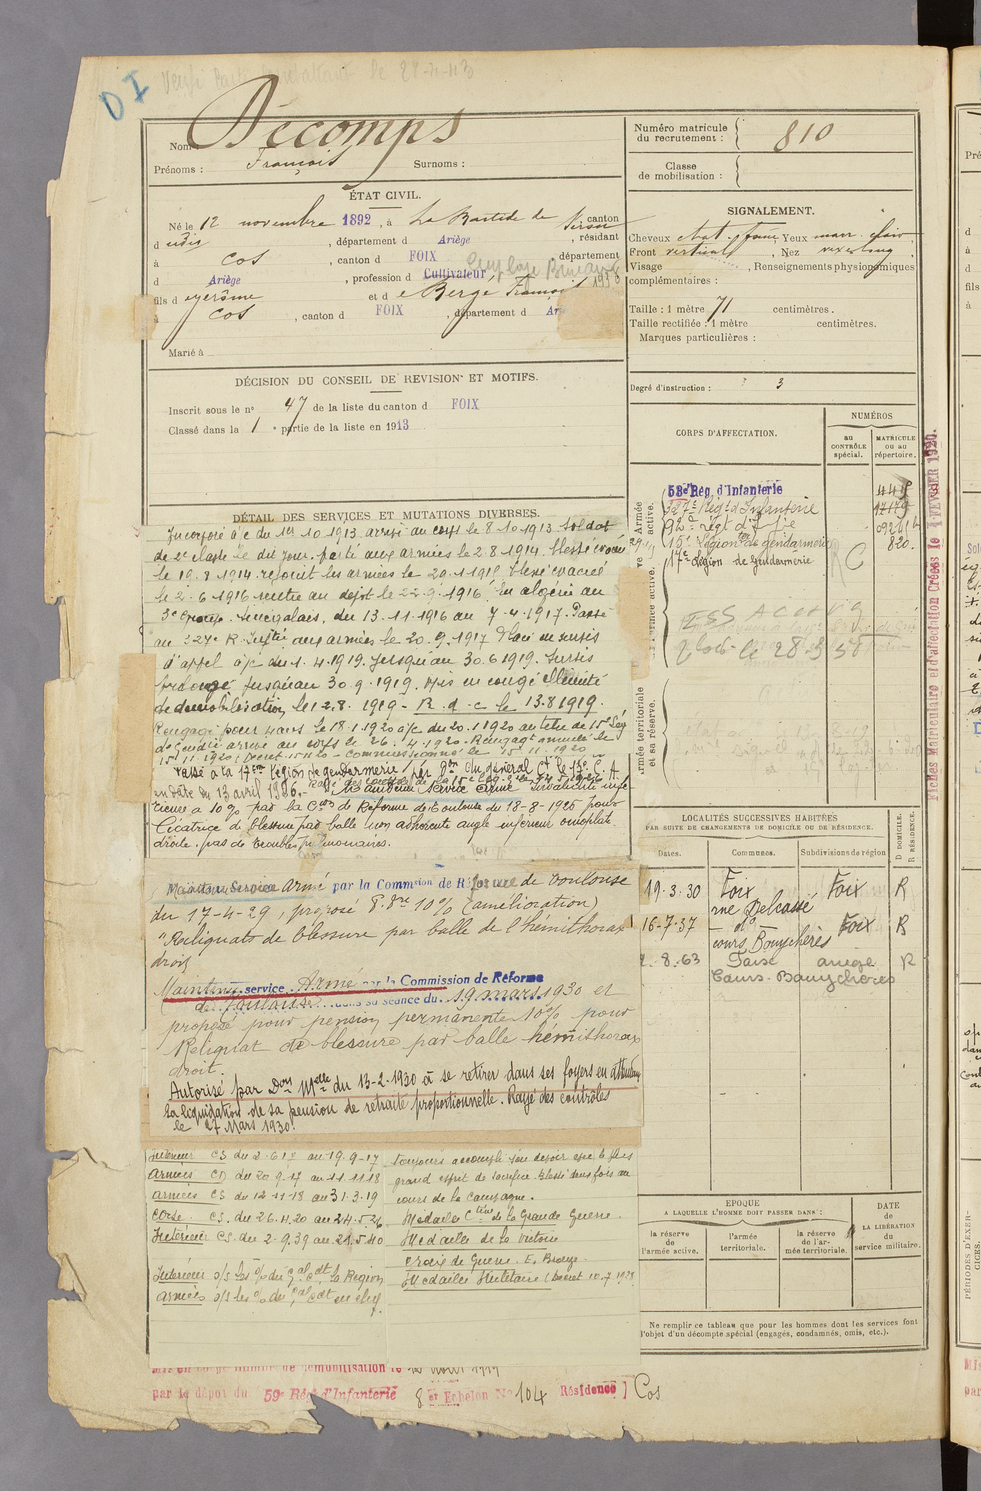 DI
le 28-11-
Nom Décomps
Prénoms : François Surnoms :
Numéro matricule du recrutement : 810
Classe de mobilisation :
ÉTAT CIVIL.
Né le 12 novembre 1892, à La Bastide de canton
d udit, département d Ariège, résidant
à Cos, canton d FOIX département
d Ariège, profession d Cultivateur, Employé Bureau 1938
fils d Jérôme et d Berge Françoise
à Cos, canton d FOIX, département d
Marié à
SIGNALEMENT.
Cheveux chat. Yeux marr. clair
Front vertical, Nez
Visage, Renseignements physionomiques
complémentaires :
Taille : 1 mètre 71 centimètres.
Taille rectifiée : 1 mètre centimètres.
Marques particulières :
Degré d'instruction : 3
DÉCISION DU CONSEIL DE REVISION ET MOTIFS.
Inscrit sous le n° 47 de la liste du canton d FOIX
Classé dans la 1 e partie de la liste en 1913
CORPS D'AFFECTATION.
NUMÉROS
au CONTRÔLE spécial.
MATRICULE ou au répertoire.
Armée active.
59e Rég. d'Infanterie
327e Régt d'Infanterie
92e régt d'Ie
15e Légion de gendarmerie 820.
17e Légion de Gendarmerie
C
le 28
Armée territoriale et sa réserve.
Fiches Matriculaire et d'affectation Créées le 1 FEVRIER 1920.
DÉTAIL DES SERVICES ET MUTATIONS DIVERSES.
Incorporé à/c du 1er 10 1913 arrivé au corps le 8.10.1913 soldat
de 2e classe le dit jour. parti aux armées le 2.8.1914. blessé évacué
le 19.8.1914. rejoint les armées le 29.1.1915 blessé évacué
le 2.6.1916 rentre au dépôt le 22.9.1916. En algérie au
3e Groupe Sénégalais, du 13.11.1916 au 7.4.1917. Passé
au 327e R. Inftie aux armées le 20.9.1917 Placé en sursis
d'appel à/c du 1.4.1919. jusqu'au 30.6.1919. Sursis
prolongé jusqu'au 30.9.1919. Mis en congé illimité
de démobilisation le 12.8.1919 - R.d.c le 13.8.1919.
Rengagé pour 4 ans le 18.1.1920 à/c du 20.1.1920 au titre de 15e Lég
de Gendie arrivé au corps le 26.4.1920. Rengagt annulé le
15.11.1920 - Commissionné le 15.11.1920
Passé à la 17ème légion de gendarmerie, par don du général Ct le 13e C.A.
en date du 13 avril 1926.
Maintenu service armé Invalidité infé-
rieure à 10% par la Con de Réforme de Toulouse du 18-8-1926 pour
Cicatrice d'blessure par balle non adhérente angle inférieur omoplate
droite. pas de troubles pulmonaires.
Maintenu Service armé par la Commsion de Réforme de Toulouse
du 17-4-29, proposé P. 10% (amélioration)
"Reliquats de blessure par balle de l'hémithorax
droit
Maintenu service Armé par la Commission de Réforme
de Toulouse dans sa séance du 19 mars 1930 et
proposé pour pension permanente 10% pour
Reliquat de blessure par balle hémithorax
droit.
Autorisé par Don Melle du 13-2-1930 à se retirer dans ses foyers en attendant
la liquidation de sa pension de retraite proportionnelle. Rayé des contrôles
le 27 Mars 1930.
LOCALITÉS SUCCESSIVES HABITÉES
PAR SUITE DE CHANGEMENTS DE DOMICILE OU DE RÉSIDENCE.
D DOMICILE. R RÉSIDENCE.
Dates. Communes. Subdivisions de région
19.3.30 Foix Foix R
rue Delcassé
16-7-37 — do — Foix R
cours Bouychères
2.8.63 Foix ariège R
Cours Bouychères
Intérieur CS du 2.6.17 au 19.9-17
Armées CD du 20 9.17 au 11.11.18
armées CS du 12.11.18 au 31.3.19
Corse CS. du 26.4.20 au 24.5.26
Intérieur CS. du 2-9.39 au 25.5.40
Intérieur o/s les o/o du gal cdt la Région
Armées o/s les o/o du gal cdt en chef
Toujours accompli son devoir avec le plus
grand esprit de sacrifice. blessé deux fois au
cours de la campagne.
Médaille Ctive de la Grande Guerre.
Médaille de la Victoire
Croix de Guerre. E. Bronze
Médaille Militaire (Décret 10.7.1928
EPOQUE
A LAQUELLE L'HOMME DOIT PASSER DANS :
la réserve de l'armée active.
l'armée territoriale.
la réserve de l'armée territoriale.
DATE de LA LIBÉRATION du service militaire.
Ne remplir ce tableau que pour les hommes dont les services font
l'objet d'un décompte spécial (engagés, condamnés, omis, etc.).
Mis en congé illimité de démobilisation le 12 Août 1919
par le dépôt du 59e Régt d'Infanterie 8 er Echelon No 104 Résidence Cos
PÉRIODES D'EXERCICES.